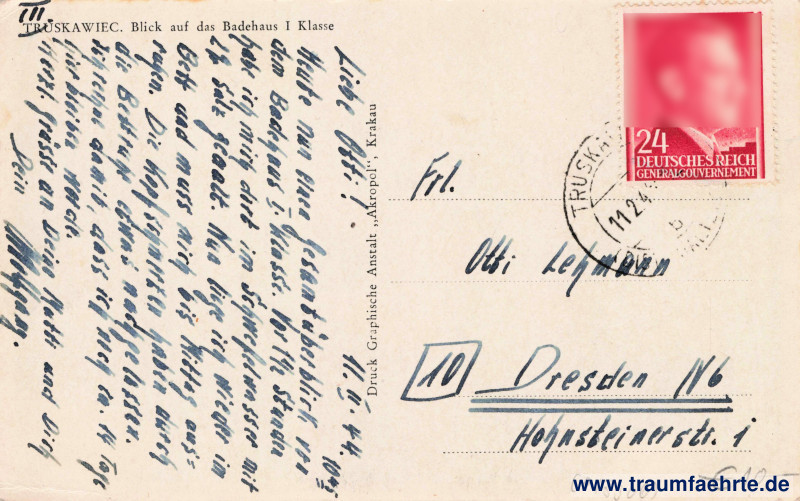 III
TRUSKAWIEC. Blick auf das Badehaus I Klasse
11. II. 44.
Liebe Otti!
Heute nun eine Gesamtüberblick von
dem Badehaus I. Klasse. Vor 1½ Stunden
habe ich mich dort im Schwefelwasser mit
Salz geaalt. Nun liege ich wieder im
Bett und muss mich bis Mittag aus-
ruhen. Die Kopfschmerzen haben durch
die Bestrahlg. etwas nachgelassen.
damit, dass ich noch ca. 14 Tage
hierbleiben werde.
Herzl. Grüsse an Deine Mutti und Dich
Dein Wolfgang.
Druck Graphische Anstalt „Akropol", Krakau
24
DEUTSCHES REICH
GENERALGOUVERNEMENT
11.2.4
b
Frl.
Otti Lehmann
10 Dresden N6
Hohnsteinerstr. 1
www.traumfaehrte.de